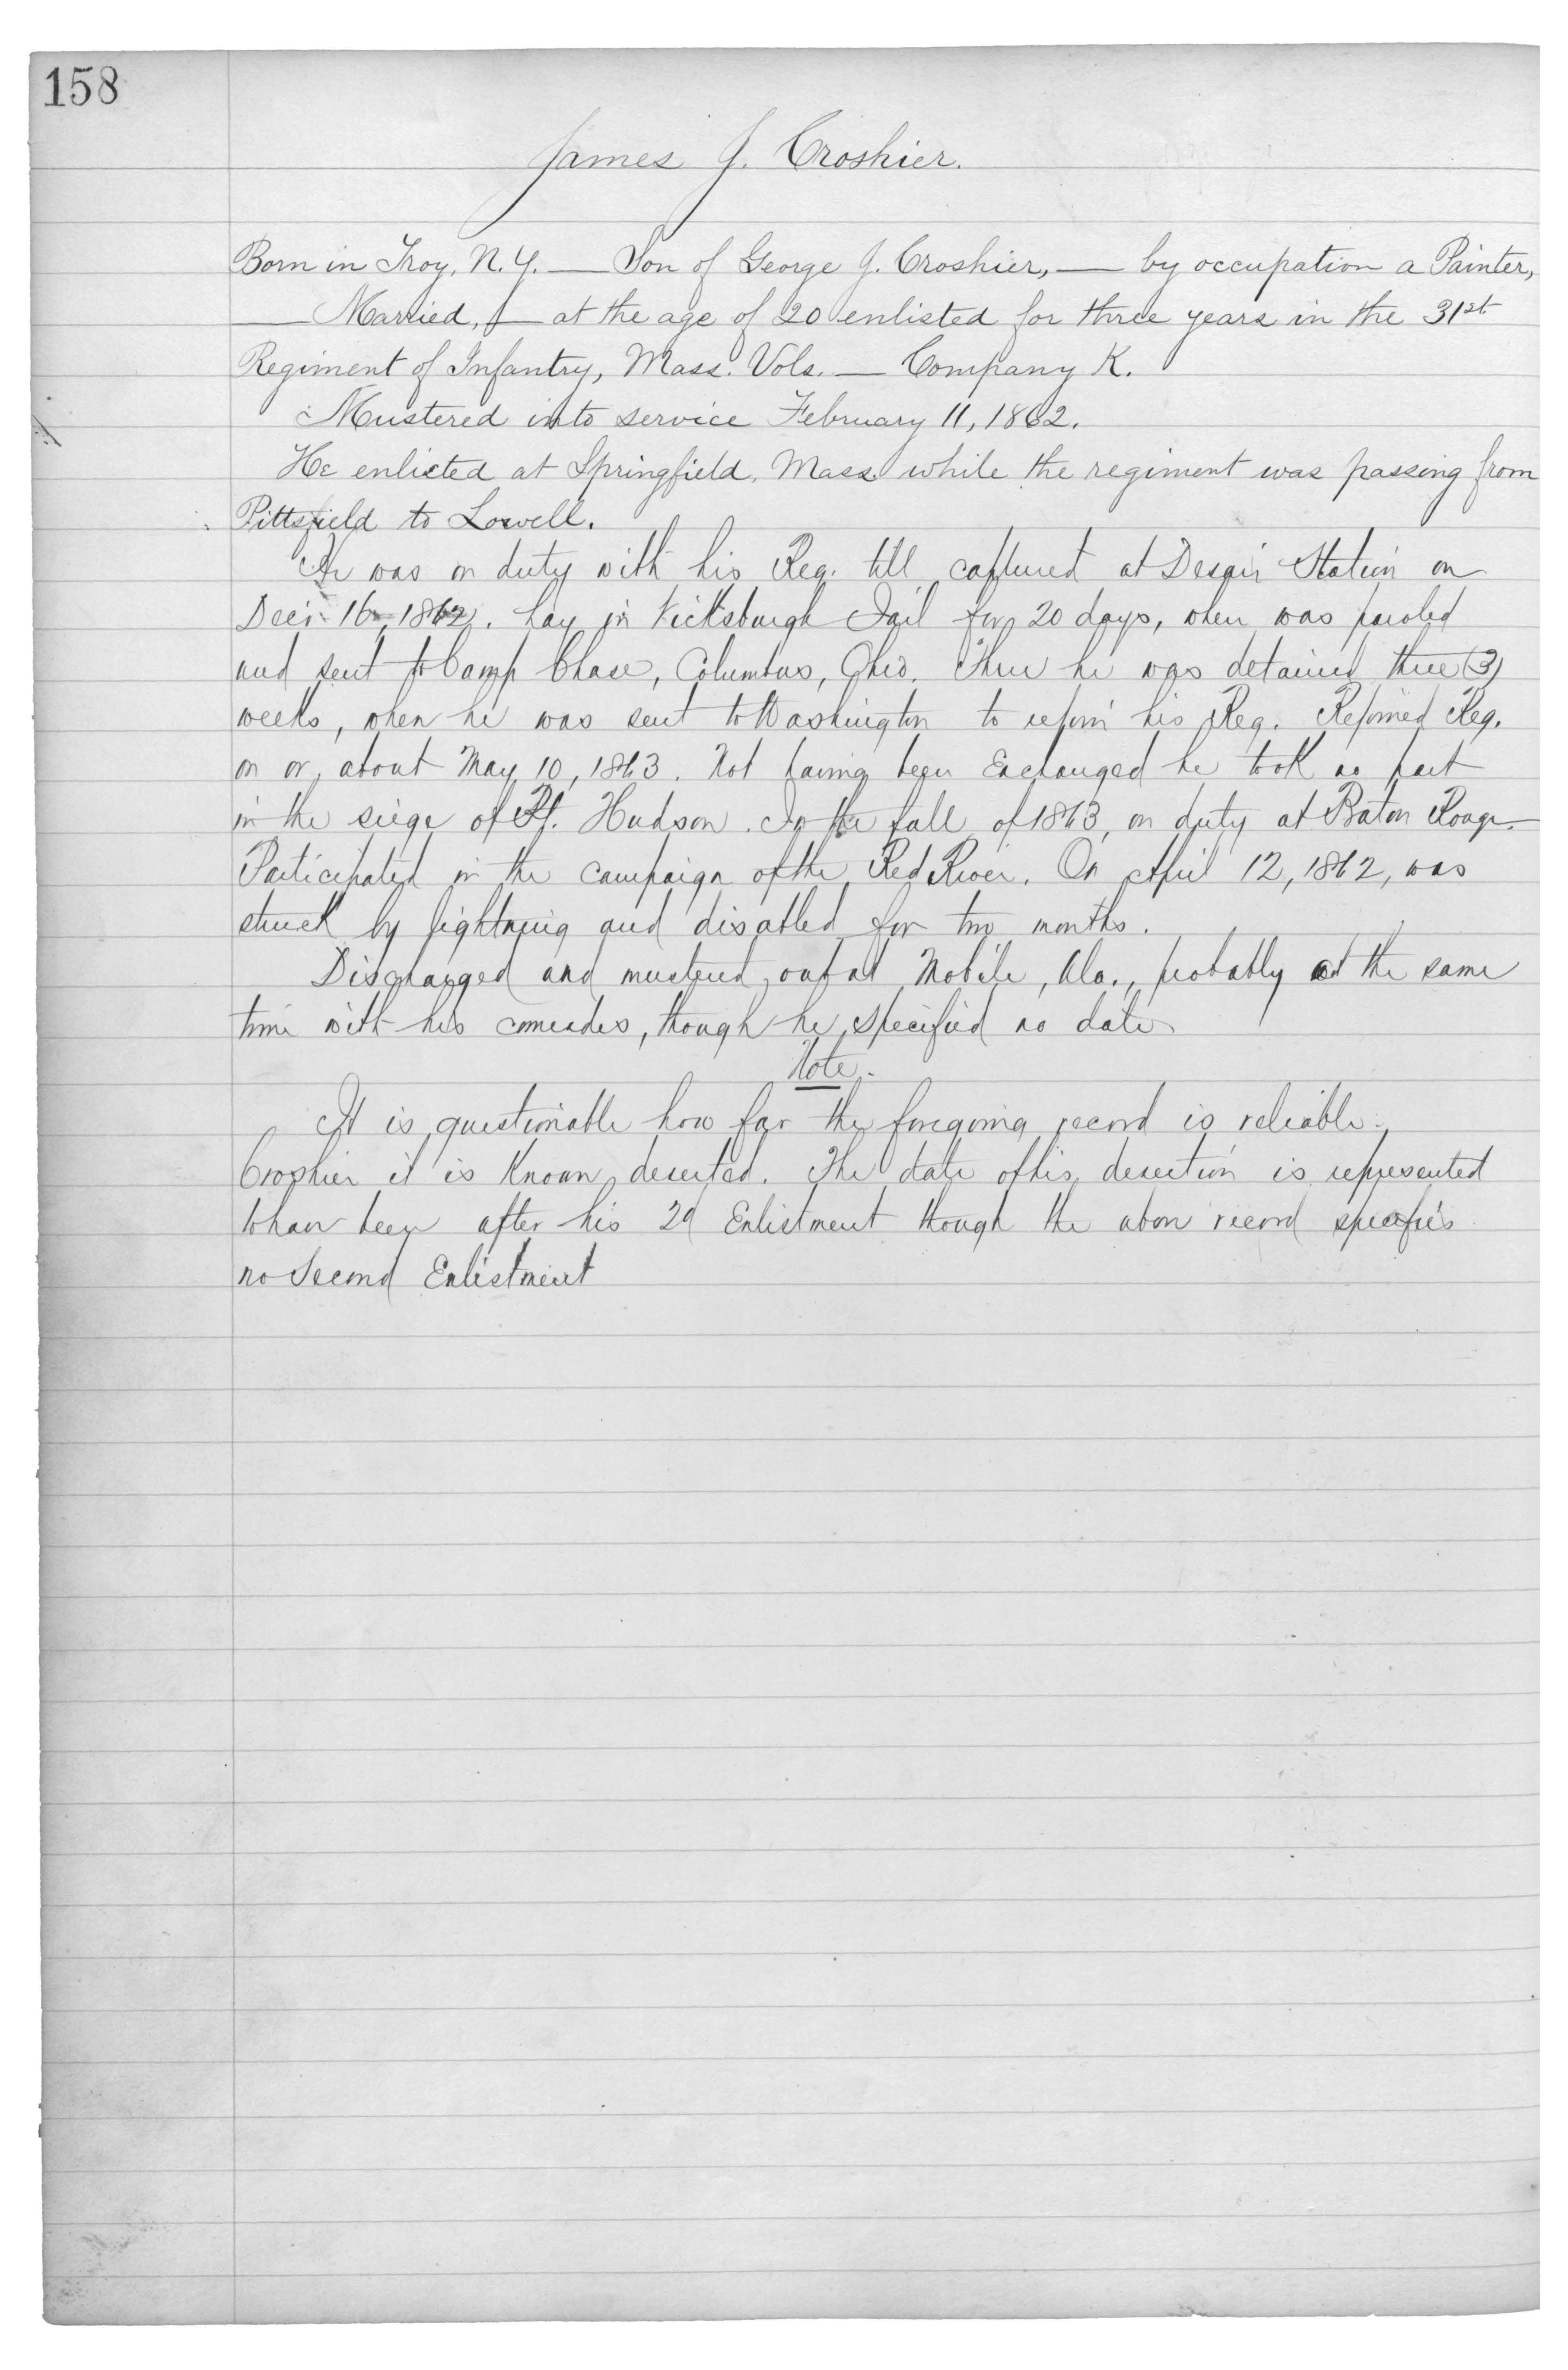 158
James J. Croshier.
Born in Troy, N.Y. — Son of George J. Croshier, — by occupation a Painter,
— Married, — at the age of 20 enlisted for three years in the 31st
Regiment of Infantry, Mass. Vols. — Company K.
Mustered into service February 11, 1862.
He enlisted at Springfield, Mass. while the regiment was passing from
Pittsfield to Lowell.
He was on duty with his Reg. till captured at Desair Station on
Dec. 16, 1862. Lay in Vicksburgh Jail for 20 days, when was paroled
and sent to Camp Chase, Columbus, Ohio. There he was detained three (3)
weeks, when he was sent to Washington to rejoin his Reg. Rejoined Reg.
on or about May 10, 1863. Not having been Exchanged he took no part
in the siege of Pt. Hudson. In the fall of 1863, on duty at Baton Rouge.
Participated in the campaign of the Red River. On April 12, 1862, was
struck by lightning and disabled for two months.
Discharged and mustered out at Mobile, Ala., probably at the same
time with his comrades, though he specified no date
Note.
It is questionable how far the foregoing record is reliable.
Croshier it is known deserted. The date of his desertion is represented
to have been after his 2d Enlistment though the above record specifies
no Second Enlistment